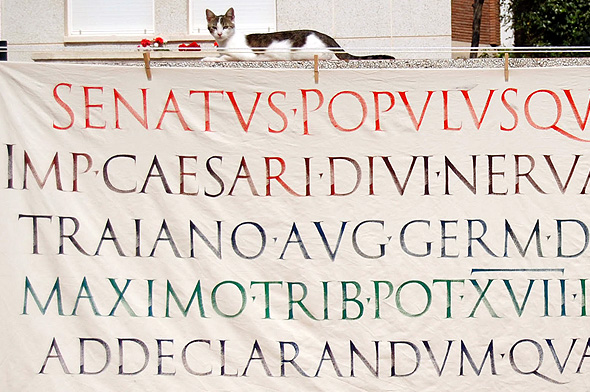 SENATVS·POPVLVSQV
IMP·CAESARI·DIVI·NERVA
TRAIANO·AVG·GERM·D
MAXIMO·TRIB·POT·XVII·I
ADDECLARANDVM·QVA